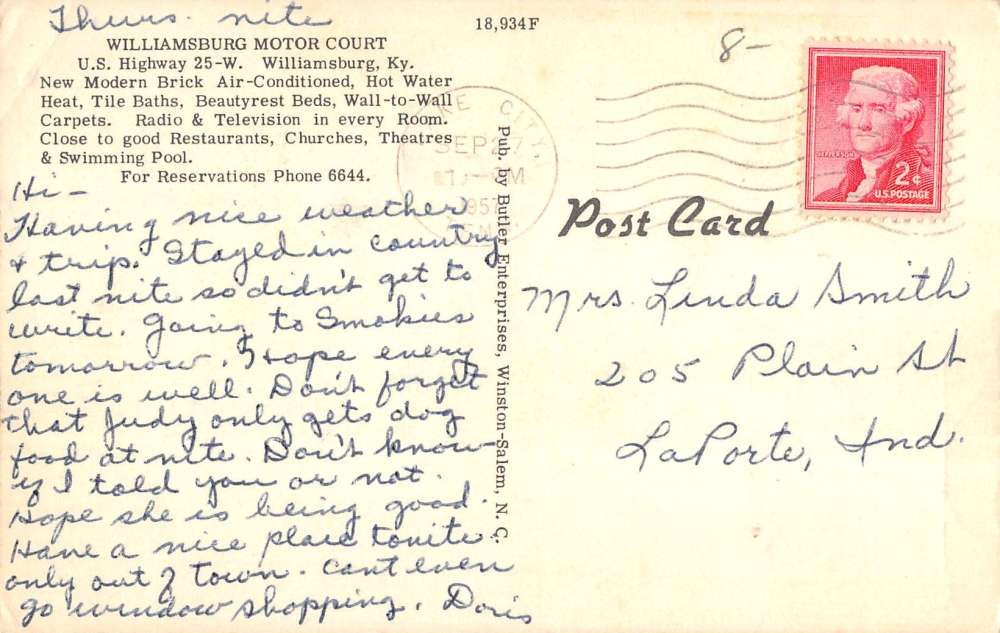 Thurs. nite
18,934F
8-
WILLIAMSBURG MOTOR COURT
U.S. Highway 25-W. Williamsburg, Ky.
New Modern Brick Air-Conditioned, Hot Water
Heat, Tile Baths, Beautyrest Beds, Wall-to-Wall
Carpets. Radio & Television in every Room.
Close to good Restaurants, Churches, Theatres
& Swimming Pool.
For Reservations Phone 6644.
Hi-
Having nice weather
& trip. Stayed in country
last nite so didn't get to
write. Going to Smokies
tomorrow. Hope every
one is well. Don't forget
that Judy only gets dog
food at nite. Don't know
if I told you or not.
Hope she is being good.
Have a nice place tonite.
only out of town. cant even
go window shopping. Doris
Pub. by Butler Enterprises, Winston-Salem, N. C.
CITY
SEP 27
M
1957
JEFFERSON
2¢
U.S. POSTAGE
Post Card
Mrs. Linda Smith
205 Plain St
LaPorte, Ind.